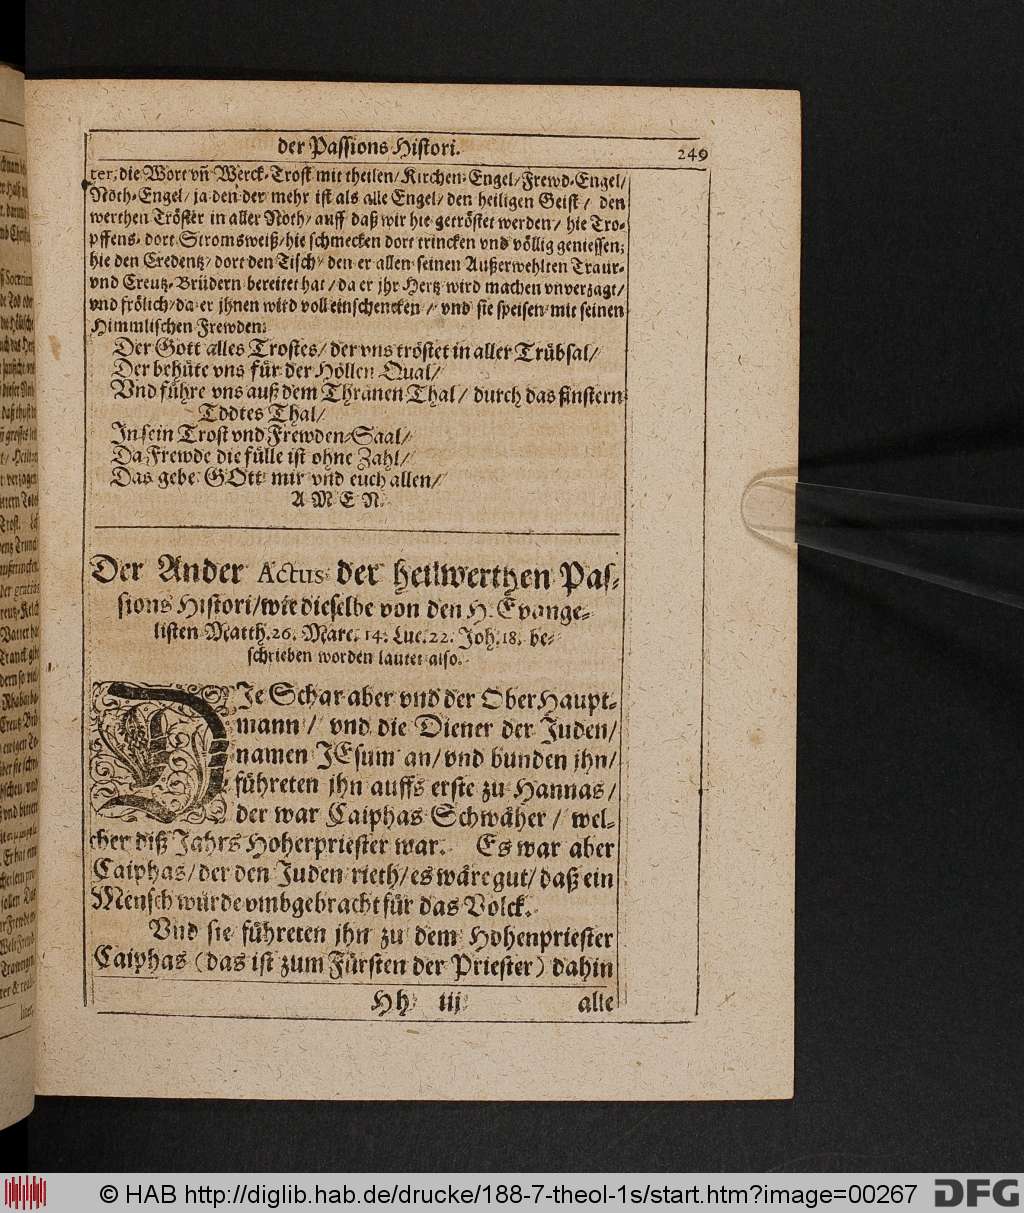 der Passions Histori.
249
ter, die Wort vñ Werck-Trost mit theilen/ Kirchen-Engel/ Frewd-Engel/
Nöth-Engel/ ja den der mehr ist als alle Engel/ den heiligen Geist/ den
werthen Tröster in aller Nöth/ auff daß wir hie getröstet werden/ hie Tro-
pffens- dort Stromsweiß/ hie schmecken dort trincken vnd völlig geniessen;
hie den Credentz/ dort den Tisch/ den er allen seinen Außerwehlten Traur-
vnd Creutz-Brüdern bereitet hat/ da er jhr Hertz wird machen vnverzagt/
vnd frölich/ da er jhnen wird voll einschencken/ vnd sie speisen mit seinen
Himmlischen Frewden:
Der Gott alles Trostes/ der vns tröstet in aller Trübsal/
Der behüte vns für der Höllen Qual/
Vnd führe vns auß dem Thränen Thal/ durch das finstern
Todtes Thal/
In sein Trost vnd Frewden-Saal/
Da Frewde die fülle ist ohne Zahl/
Das gebe GOtt mir vnd euch allen/
A M E N.
Der Ander Actus der heilwerthen Pas-
sions Histori/ wie dieselbe von den H. Evange-
listen Matth. 26. Marc. 14. Luc. 22. Joh. 18. be-
schrieben worden lautet also.
DJe Schar aber vnd der Ober Haupt-
mann/ vnd die Diener der Juden/
namen JEsum an/ vnd bunden jhn/
führeten jhn auffs erste zu Hannas/
der war Caiphas Schwäher/ wel-
cher diß Jahrs Hoherpriester war. Es war aber
Caiphas/ der den Juden rieth/ es wäre gut/ daß ein
Mensch würde vmbgebracht für das Volck.
Vnd sie führeten jhn zu dem Hohenpriester
Caiphas (das ist zum Fürsten der Priester) dahin
Hh iij
alle
© HAB http://diglib.hab.de/drucke/188-7-theol-1s/start.htm?image=00267
DFG